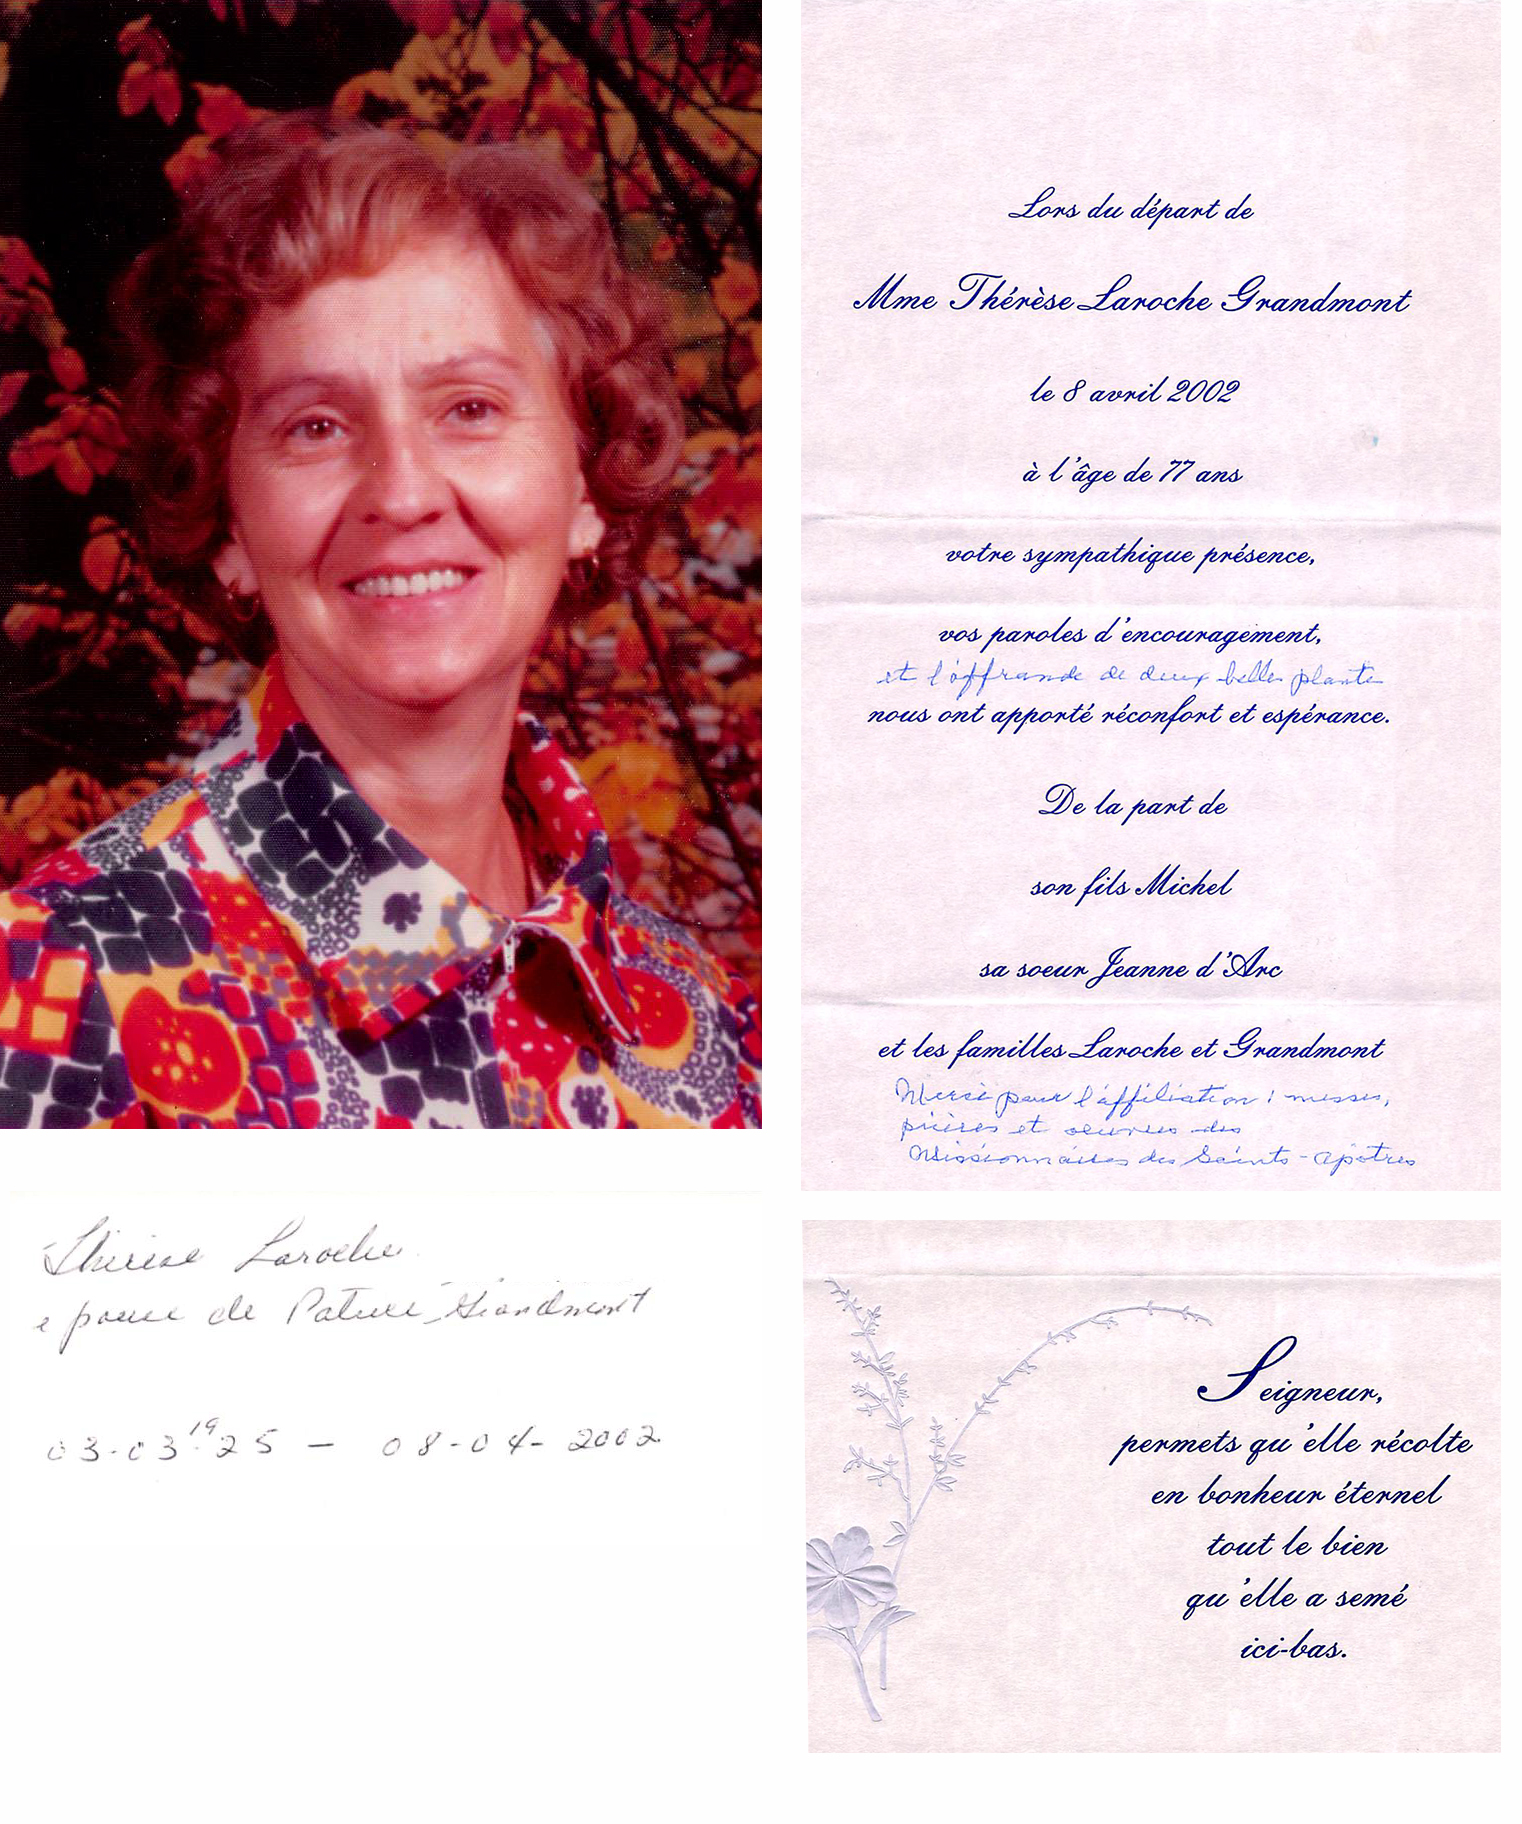 Lors du départ de
Mme Thérèse Laroche Grandmont
le 8 avril 2002
à l'âge de 77 ans
votre sympathique présence,
vos paroles d'encouragement,
et l'offrande de deux belles plantes
nous ont apporté réconfort et espérance.
De la part de
son fils Michel
sa soeur Jeanne d'Arc
et les familles Laroche et Grandmont
Merci pour l'affiliation : messes,
prières et oeuvres des
Missionnaires des Saints-Apôtres
Thérèse Laroche
épouse de Grandmont
03-03-1925 — 08-04-2002
Seigneur,
permets qu'elle récolte
en bonheur éternel
tout le bien
qu'elle a semé
ici-bas.